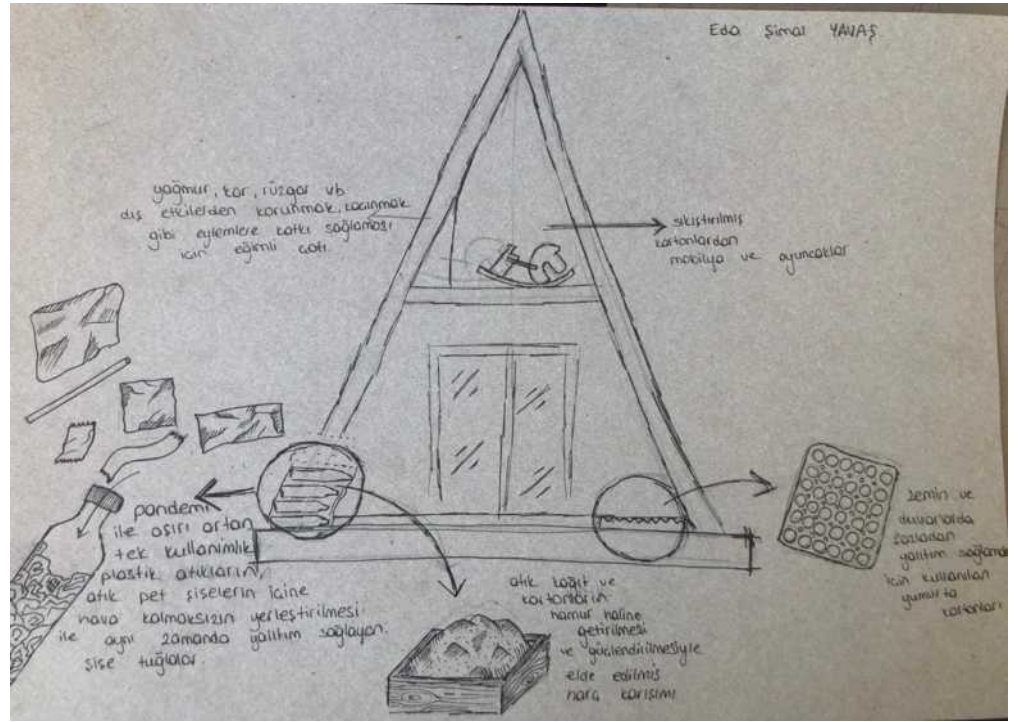 Eda Şimal YAVAŞ
yağmur, kar, rüzgar vb
dış etkilerden korunmak, kaçınmak
gibi eylemlere katkı sağlaması
için eğimli çatı.
sıkıştırılmış
kartonlardan
mobilya ve oyuncaklar
pandemi
ile aşırı artan
tek kullanımlık
plastik atıkların,
atık pet şişelerin içine
hava kalmaksızın yerleştirilmesi
ile aynı zamanda yalıtım sağlayan
şişe tuğlalar.
atık kağıt ve
kartonların
hamur haline
getirilmesi
ve güçlendirilmesiyle
elde edilmiş
harç karışımı
zemin ve
duvarlarda
fazladan
yalıtım sağlamak
için kullanılan
yumurta
kartonları